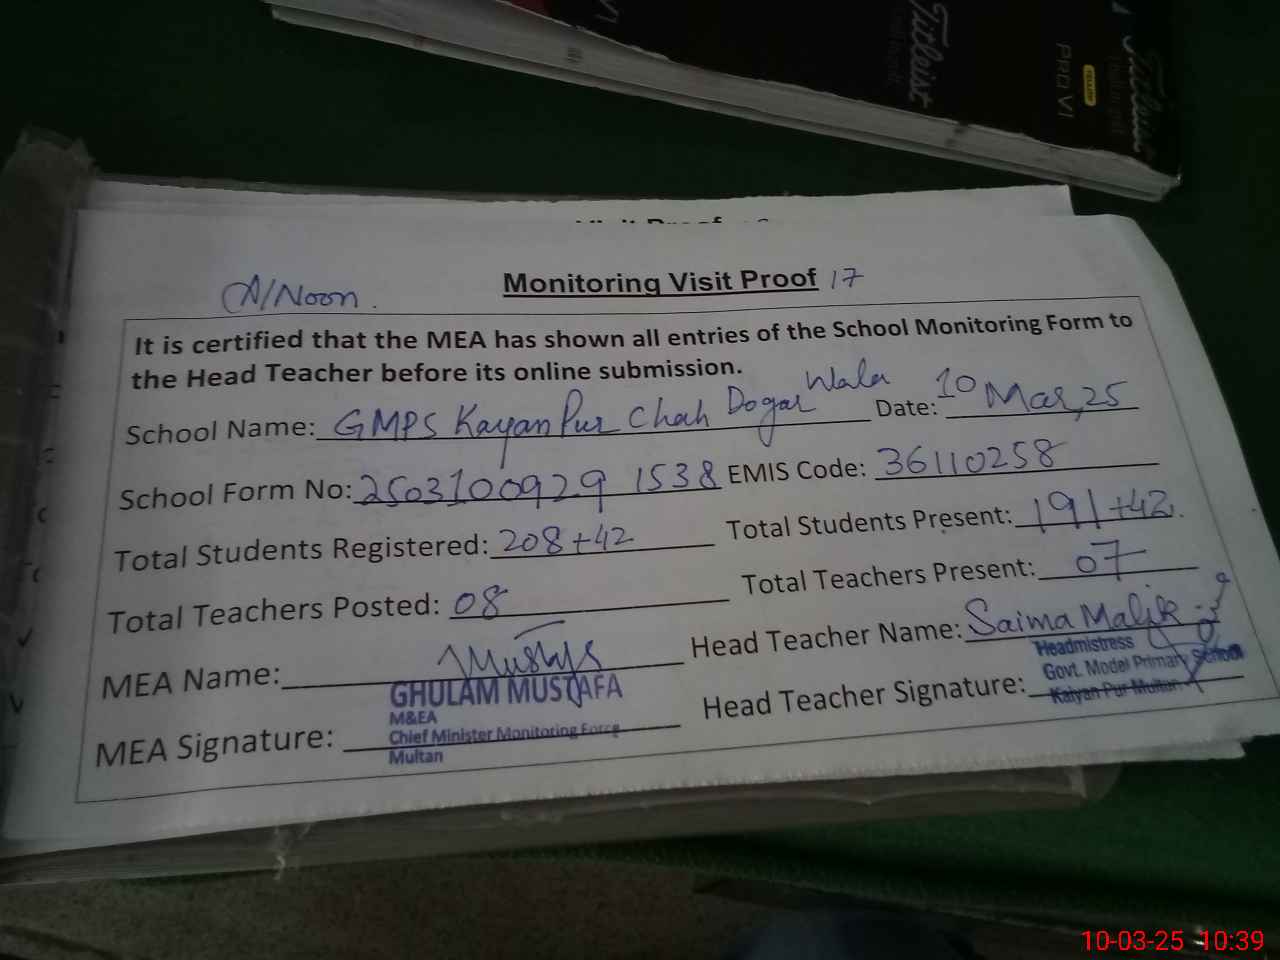 Titleist
PRO VI
YELLOW
A/Noon.
Monitoring Visit Proof 17
It is certified that the MEA has shown all entries of the School Monitoring Form to
the Head Teacher before its online submission.
School Name: GMPS Kayan Pur Chah Dogar Wala Date: 10 Mar, 25
School Form No: 2503100929 1538 EMIS Code: 36110258
Total Students Registered: 208+42 Total Students Present: 191+42
Total Teachers Posted: 08 Total Teachers Present: 07
MEA Name: Head Teacher Name: Saima Malik
GHULAM MUSTAFA
M&EA
Chief Minister Monitoring Force
Multan
Headmistress
Govt. Model Primary School
Kaiyan Pur Multan
MEA Signature: Head Teacher Signature:
10-03-25 10:39